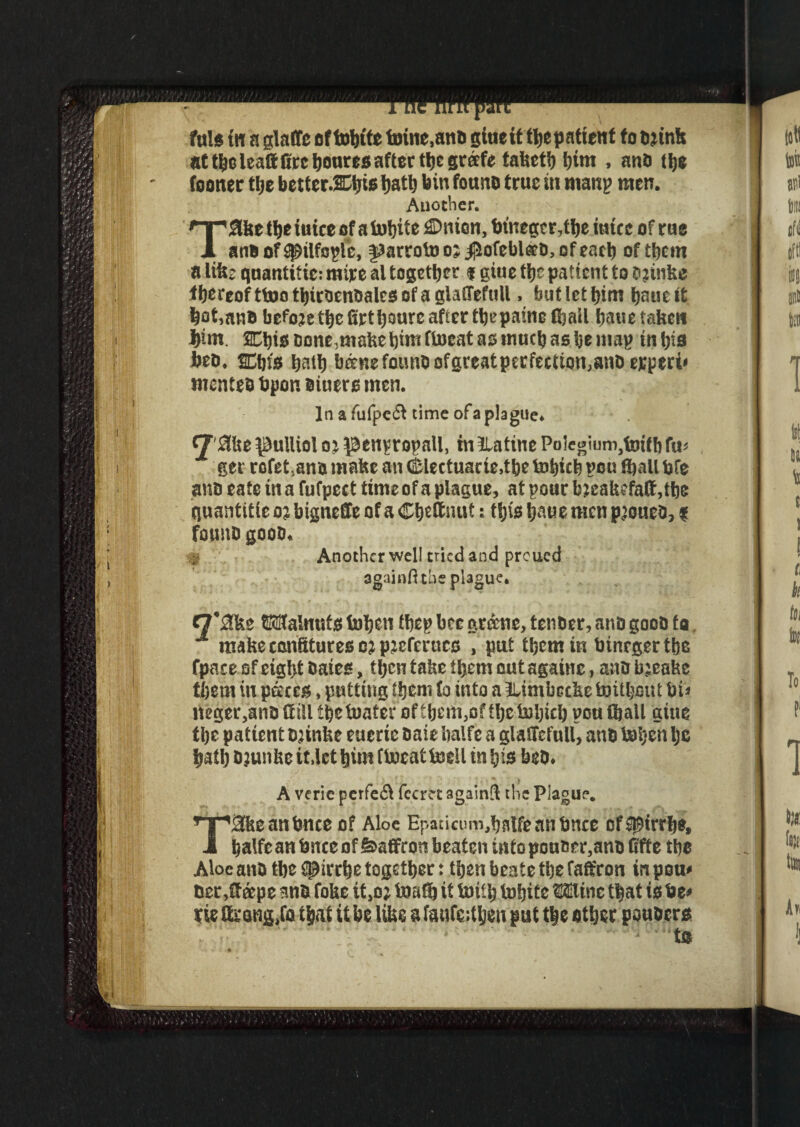 The first part
fuls in a glasse of white wine, and giue it the patient to drink
at the least sixe houres after the greefe taketh him , and the
sooner the better. This hath bin found true in many men.
Another.
TAke the iuice of a white Onion, vineger, the iuice of rue
and of Milfoyle, Yarrow or Nosebleed, of each of them
a like quantitie: mixe al together & giue the patient to drinke
thereof two thirdendales of a glassefull , but let him haue it
hot, and before the sixt houre after the paine shall haue taken
him. This done, make him sweat as much as he may in his
bed. This hath beene found of great perfection, and experi-
mented vpon diuers men.
In a suspect time of a plague.
TAke Pulliol or Penyropall, in Latine Polegium, with su-
ger roset, and make an Electuarie, the which you shall vse
and eate in a suspect time of a plague, at your breakefast, the
quantitie or bignesse of a Chestnut : this haue men proued, &
found good.
Another well tried and proued
against the plague.
TAke Walnuts when they bee greene, tender, and good to
make confitures or preserues , put them in vineger the
space of eight daies, then take them out againe, and breake
them in peeces, putting them to into a Limbecke without vi-
neger, and still the water of them, of the which you shall giue
the patient drinke euerie daie halfe a glassefull, and when he
hath drunke it, let him sweat well in his bed.
A verie perfect secret against the Plague.
TAke an vnce of Aloe Epaticum, halfe an vnce of Mirrhe,
halfe an vnce of Saffron beaten into pouder, and sifte the
Aloe and the Mirrhe together : then beate the saffron in pou-
der, steepe and soke it, or wash it with white Wine that is ve-
rie strong, so that it be like a sause: then put the other pouders
to